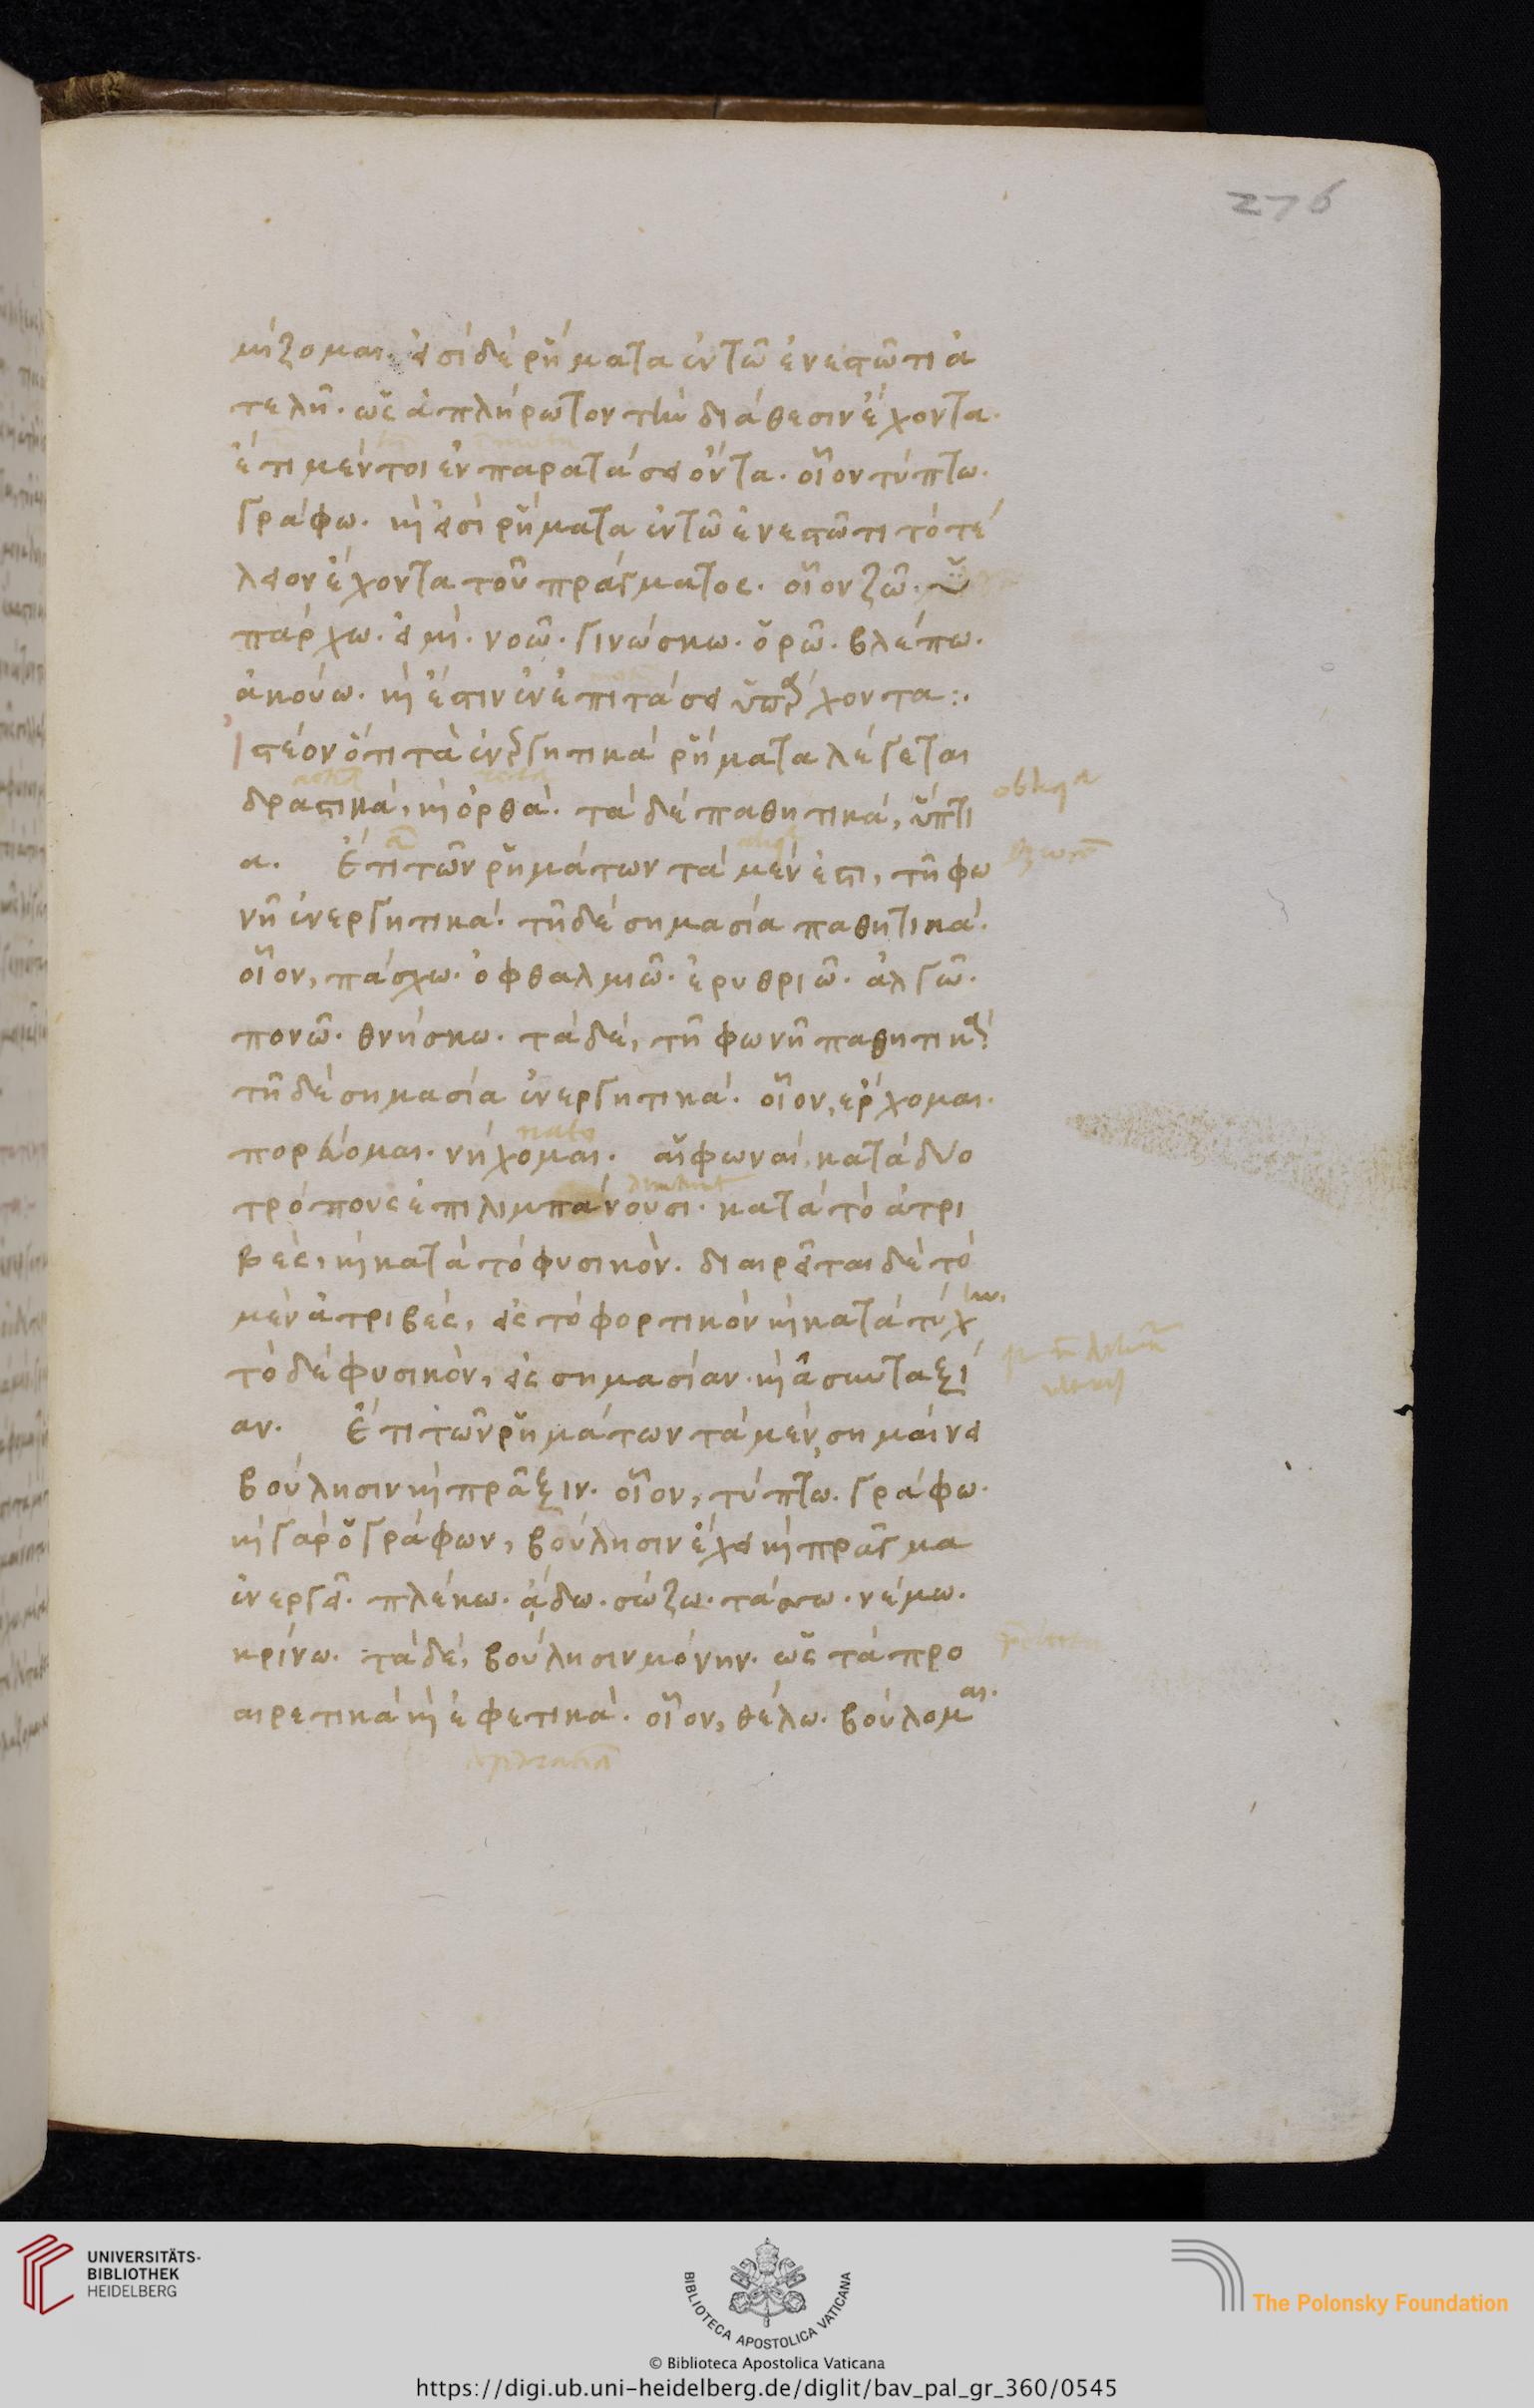 276
μίζομαι. εἰσὶ δὲ ῥήματα ἐν τῶ ἐνεστῶτι ἀ
τελῆ. ὡς ἀπλήρωτον τὴν διάθεσιν ἔχοντα.
ἔτι μέντοι ἐν παρατάσει ὄντα. οἷον τύπτω.
γράφω. καὶ εἰσὶ ῥήματα ἐν τῶ ἐνεστῶτι τὸ τέ
λειον ἔχοντα τοῦ πράγματος. οἷον ζῶ. ὑ
πάρχω. εἰμί. νοῶ. γινώσκω. ὁρῶ. βλέπω.
ἀκούω. καὶ ἔστιν ἐν ἐπιτάσει ὑπάρχοντα:.
ἰστέον ὅτι τὰ ἐνεργητικὰ ῥήματα λέγεται
δραστικά, καὶ ὀρθά. τὰ δὲ παθητικά, ὕπτι
obliqa
α. Ἔτι τῶν ῥημάτων τὰ μέν ἐστι, τῆ φω
νῆ ἐνεργητικά. τῆ δὲ σημασία παθητικά.
οἷον, πάσχω. ὀφθαλμιῶ. ἐρυθριῶ. ἀλγῶ.
πονῶ. θνήσκω. τὰ δὲ, τῆ φωνῆ παθητικά
τῆ δὲ σημασία ἐνεργητικά. οἷον, ἔρχομαι.
nato
πορεύομαι. νήχομαι. αἱ φωναὶ, κατὰ δύο
τρόπους ἐπιλιμπάνουσι. κατὰ τὸ ἀτρι
βὲς, καὶ κατὰ τὸ φυσικόν. διαιρεῖται δὲ τὸ
μὲν ἀτριβὲς, εἰς τὸ φορτικὸν καὶ κατὰ τύχην,
τὸ δὲ φυσικὸν, εἰς σημασίαν. καὶ ἀσυνταξί
αν. Ἔτι τῶν ῥημάτων τὰ μὲν, σημαίνει
βούλησιν καὶ πρᾶξιν. οἷον, τύπτω. γράφω.
καὶ γὰρ ὁ γράφων, βούλησιν ἔχει καὶ πρᾶγμα
ἐνεργεῖ. πλέκω. ἄδω. σώζω. τάσσω. νέμω.
κρίνω. τὰ δὲ, βούλησιν μόνην. ὡς τὰ προ
αιρετικὰ καὶ ἐφετικά. οἷον, θέλω. βούλομαι.
UNIVERSITÄTS-
BIBLIOTHEK
HEIDELBERG
BIBLIOTECA APOSTOLICA VATICANA
The Polonsky Foundation
© Biblioteca Apostolica Vaticana
https://digi.ub.uni-heidelberg.de/diglit/bav_pal_gr_360/0545